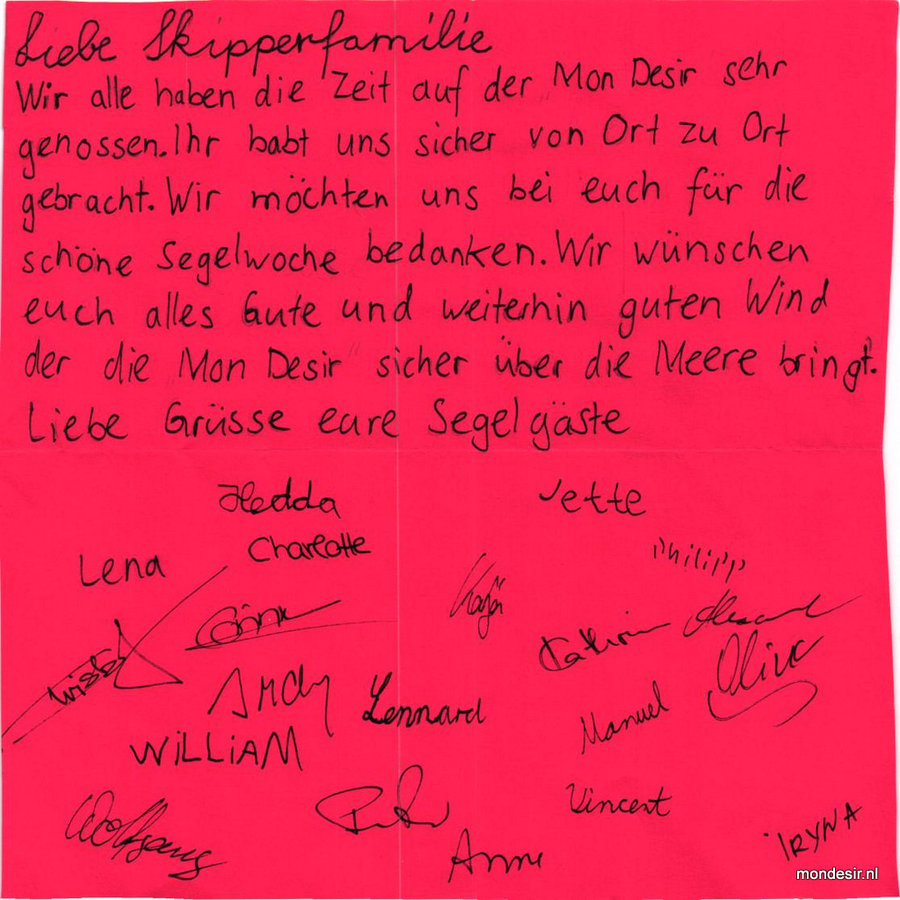 Liebe Skipperfamilie
Wir alle haben die Zeit auf der „Mon Desir" sehr
genossen. Ihr habt uns sicher von Ort zu Ort
gebracht. Wir möchten uns bei euch für die
schöne Segelwoche bedanken. Wir wünschen
euch alles Gute und weiterhin guten Wind
der die "Mon Desir" sicher über die Meere bringt.
Liebe Grüsse eure Segelgäste
Hedda
Jette
Charlotte
Lena
Philipp
Katja
Andy
Lennard
Manuel
WiLLiAM
Vincent
Wolfgang
Anne
IRYNA
mondesir.nl